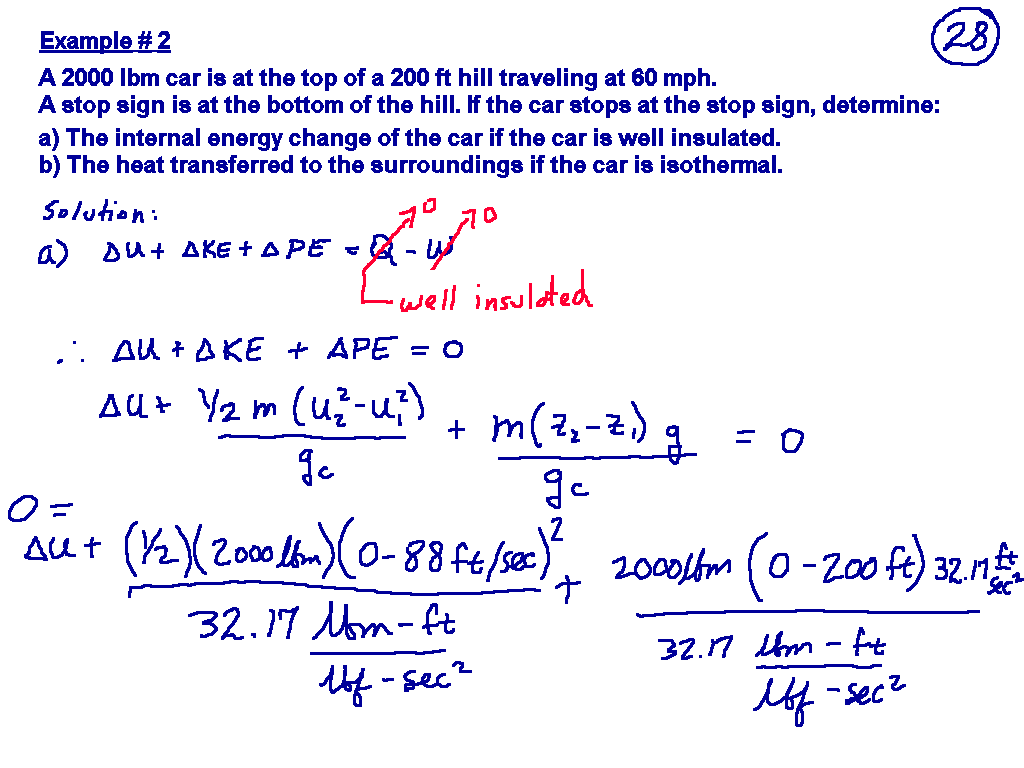 28
Example # 2
A 2000 lbm car is at the top of a 200 ft hill traveling at 60 mph.
A stop sign is at the bottom of the hill. If the car stops at the stop sign, determine:
a) The internal energy change of the car if the car is well insulated.
b) The heat transferred to the surroundings if the car is isothermal.
Solution:
0 0
a) ΔU + ΔKE + ΔPE = Q - W
well insulated
∴ ΔU + ΔKE + ΔPE = 0
ΔU + ½ m (u₂² - u₁²) / gc + m(z₂ - z₁) g / gc = 0
0 =
ΔU + (½)(2000 lbm)(0 - 88 ft/sec)² / 32.17 lbm-ft / lbf-sec² + 2000 lbm (0 - 200 ft) 32.17 ft/sec² / 32.17 lbm-ft / lbf-sec²